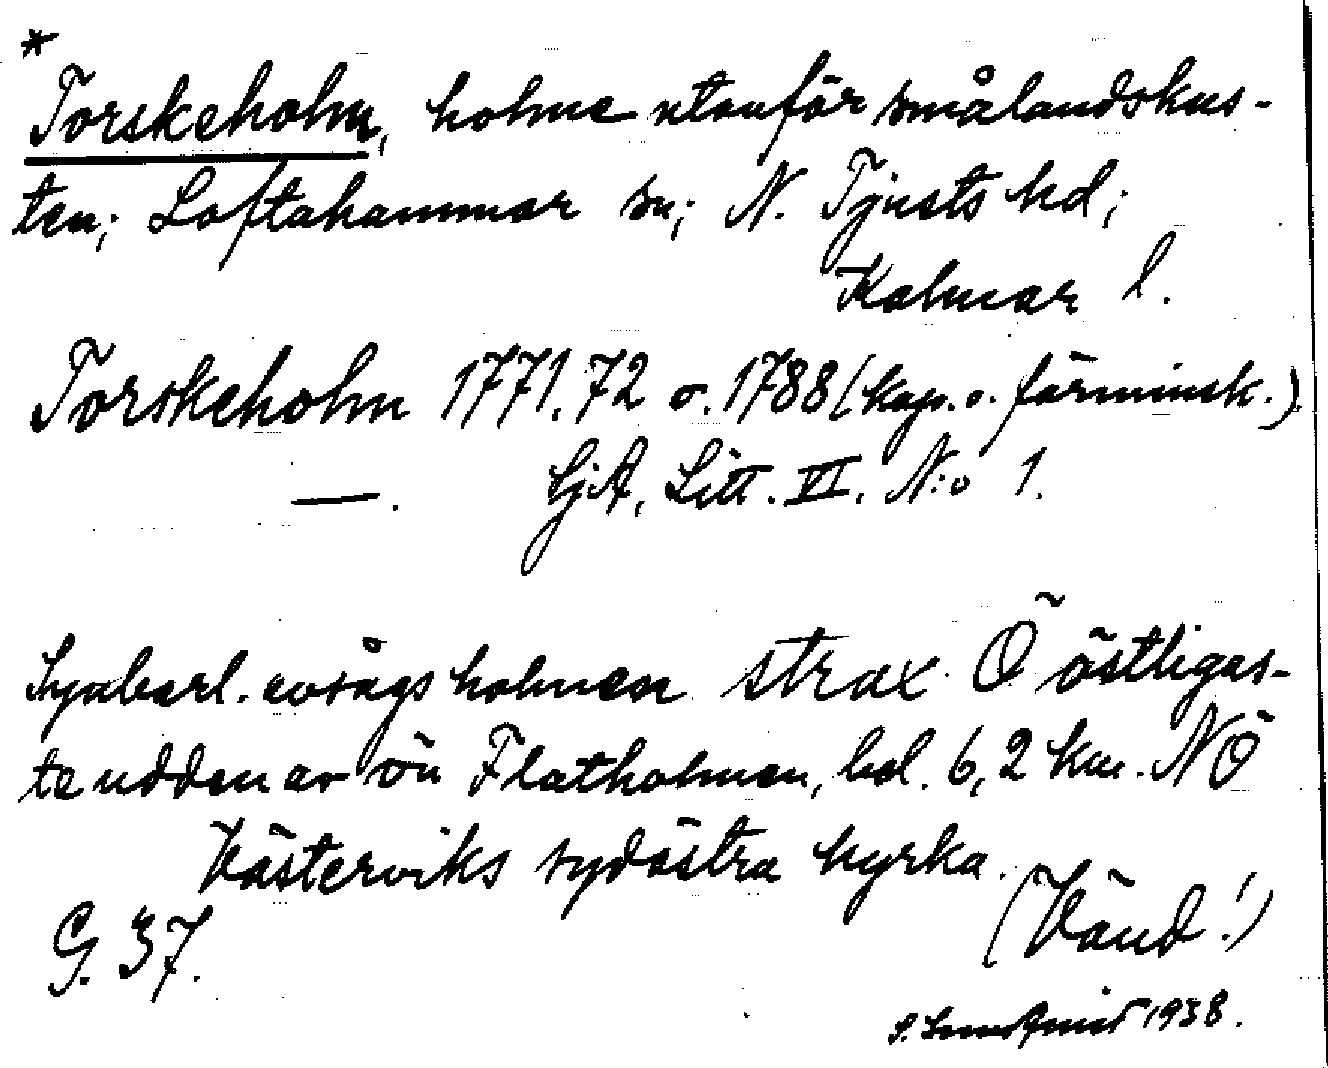 *
Torskeholm, holme utanför smålandskus-
ten; Loftahammar sn; N. Tjusts hd;
Kalmar l.
Torskeholm 1771.72 o. 1788 (kop. o. förminsk.)
—. SjA, Litt. VI. N:o 1.
Synbarl. avsågs holmen strax Ö östligas-
te udden av ön Flatholmen, bel. 6,2 km. NÖ
Västerviks sydöstra kyrka.
(Vänd!)
G. 37.
S. 1938.